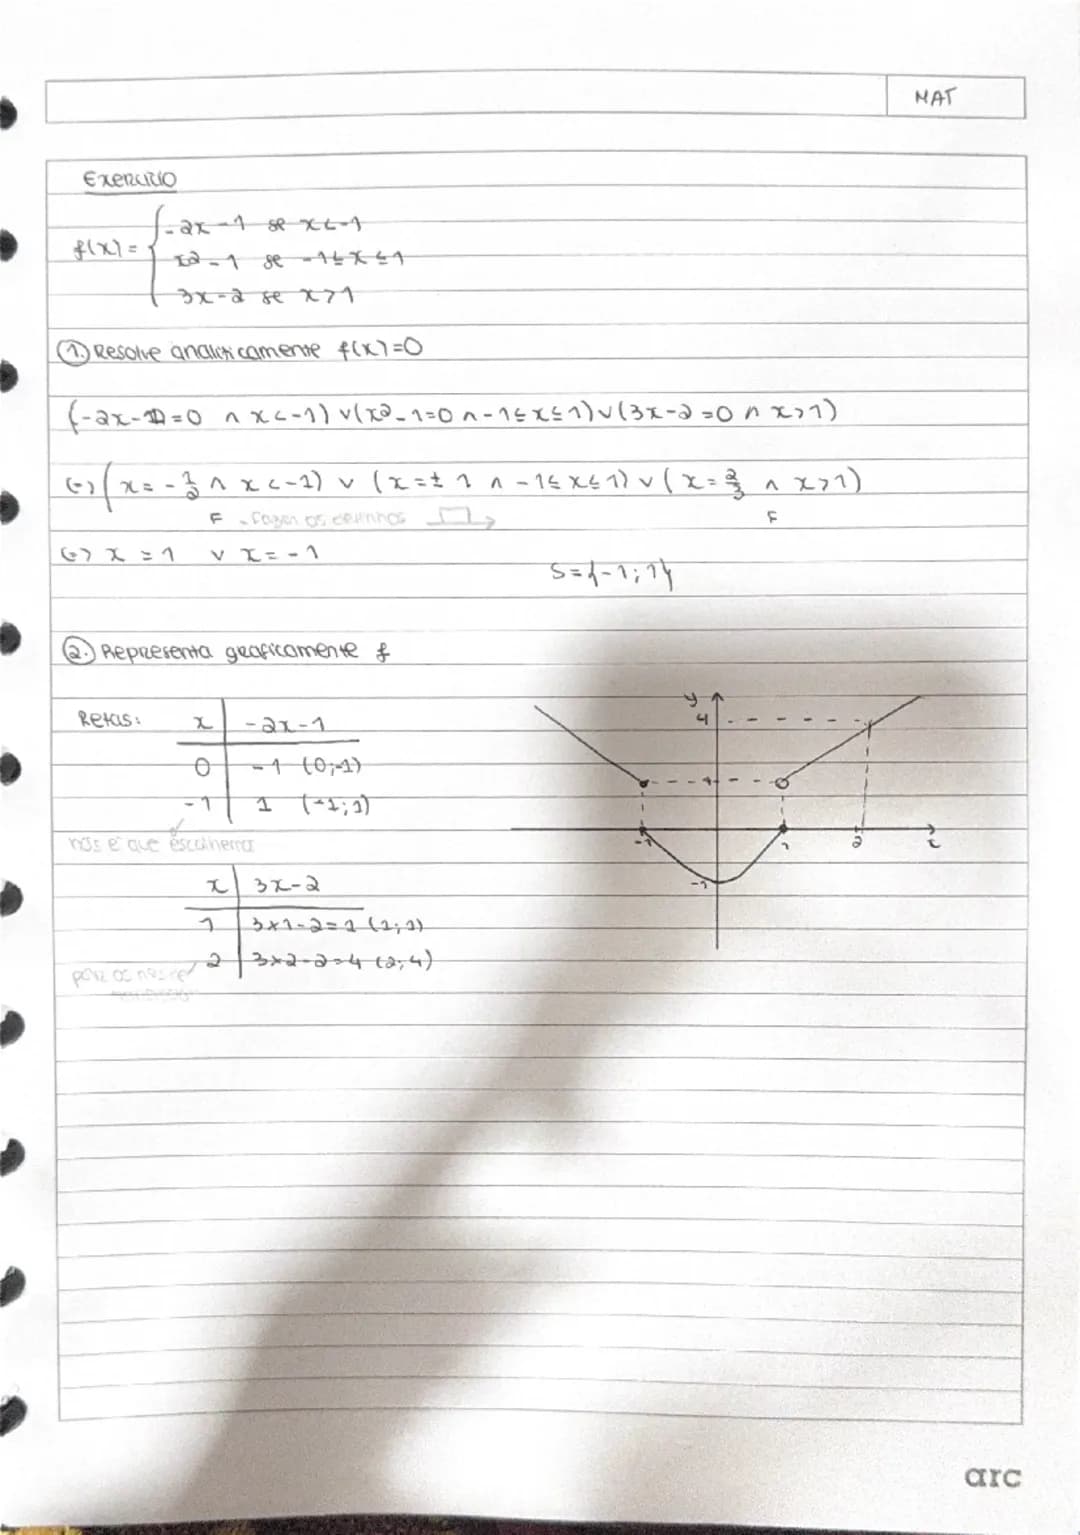 MAT
Exercício
f(x) = { -2x-1 se x<-1
x2-1 se -1≤x≤1
3x-2 se x>1
1. Resolve analiticamente f(x)=0
(-2x-1=0 ∧ x<-1) ∨ (x2-1=0 ∧ -1≤x≤1) ∨ (3x-2=0 ∧ x>1)
(=) (x = -1/2 ∧ x<-1) ∨ (x=±1 ∧ -1≤x≤1) ∨ (x=2/3 ∧ x>1)
F - fazer os F
(=) x = 1 ∨ x = -1
S={-1;1}
2. Representa graficamente f
Retas: x | -2x-1
0 | -1 (0;-1)
-1 | 1 (-1;1)
nós é que escolhemos
x | 3x-2
1 | 3x1-2=1 (1;1)
2 | 3x2-2=4 (2;4)
y
4
1
-1 1 2 x
-1
arc